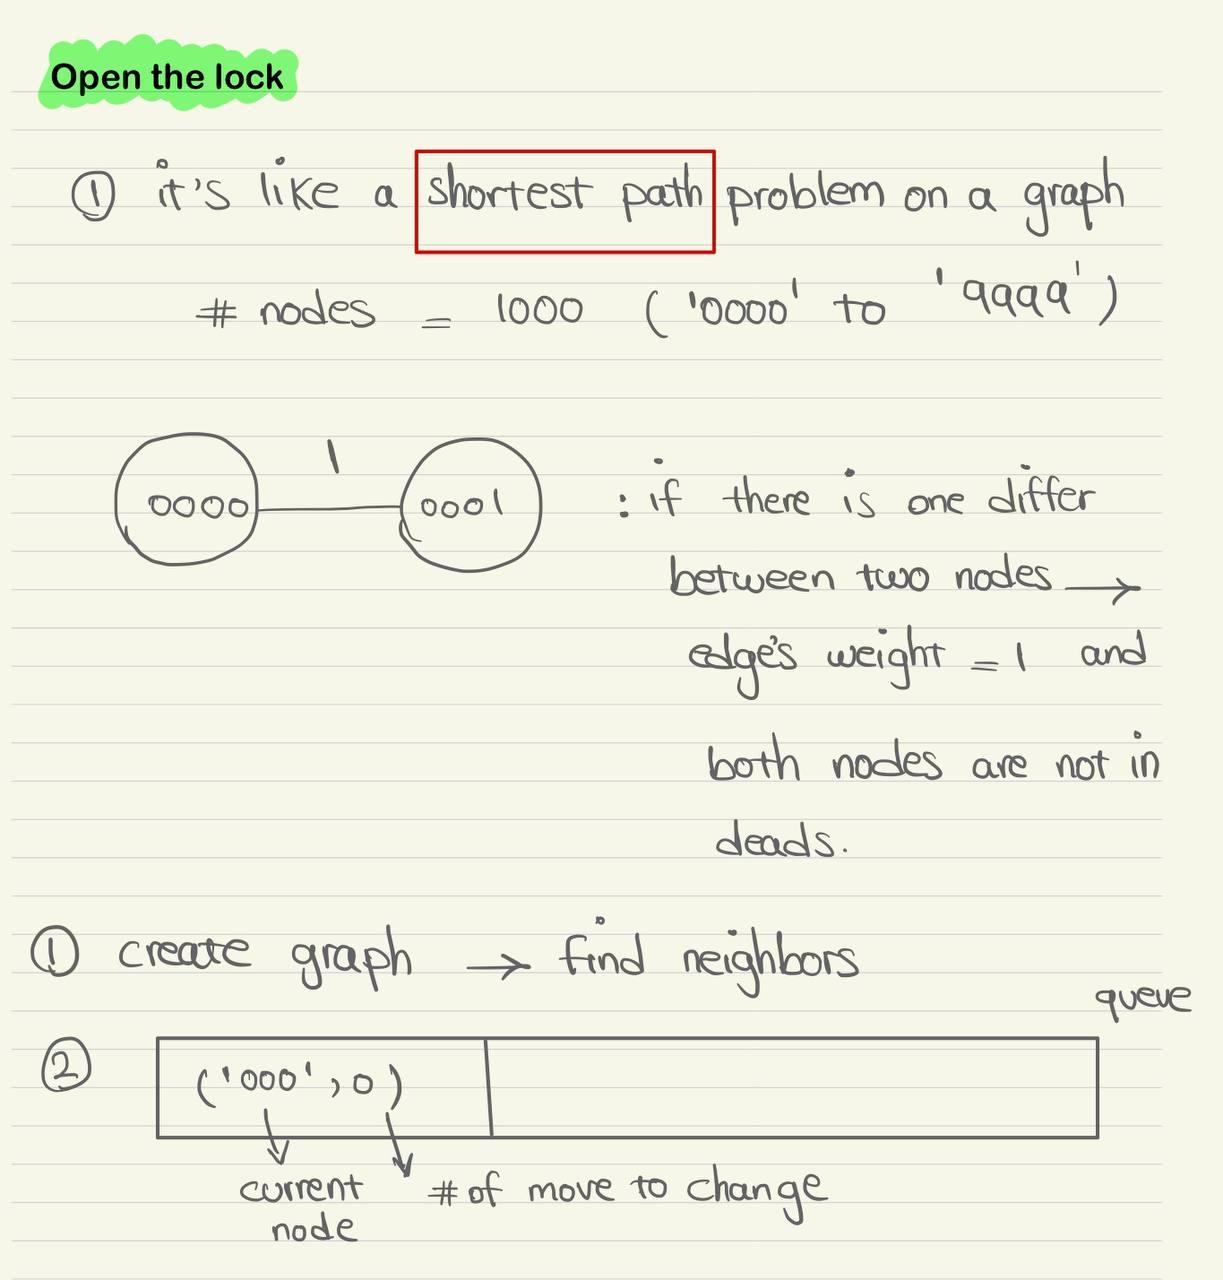 Open the lock
① it's like a shortest path problem on a graph
# nodes = 1000 ('0000' to '9999')
1
0000 0001 : if there is one differ
between two nodes →
edge's weight = 1 and
both nodes are not in
deads.
① create graph → find neighbors
queue
② ('000', 0)
current # of move to change
node